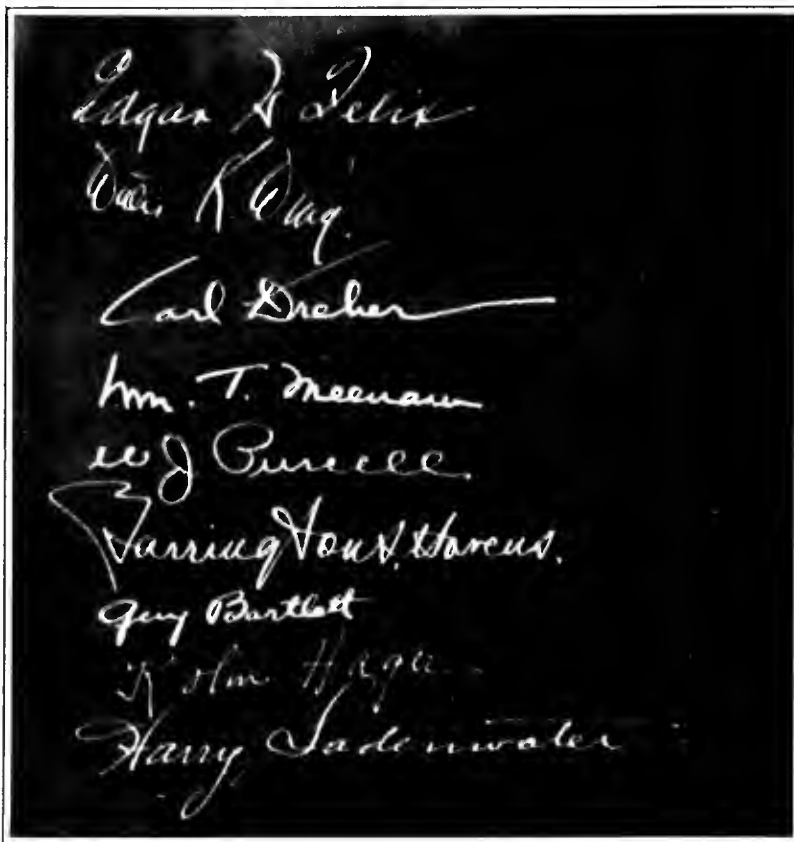 Edgar H Felix
K
Carl Dreher
Wm. T. Meenam
W J Purcell
Harrington
Guy Bartlett
Kolin Hager
Harry Sadenwater